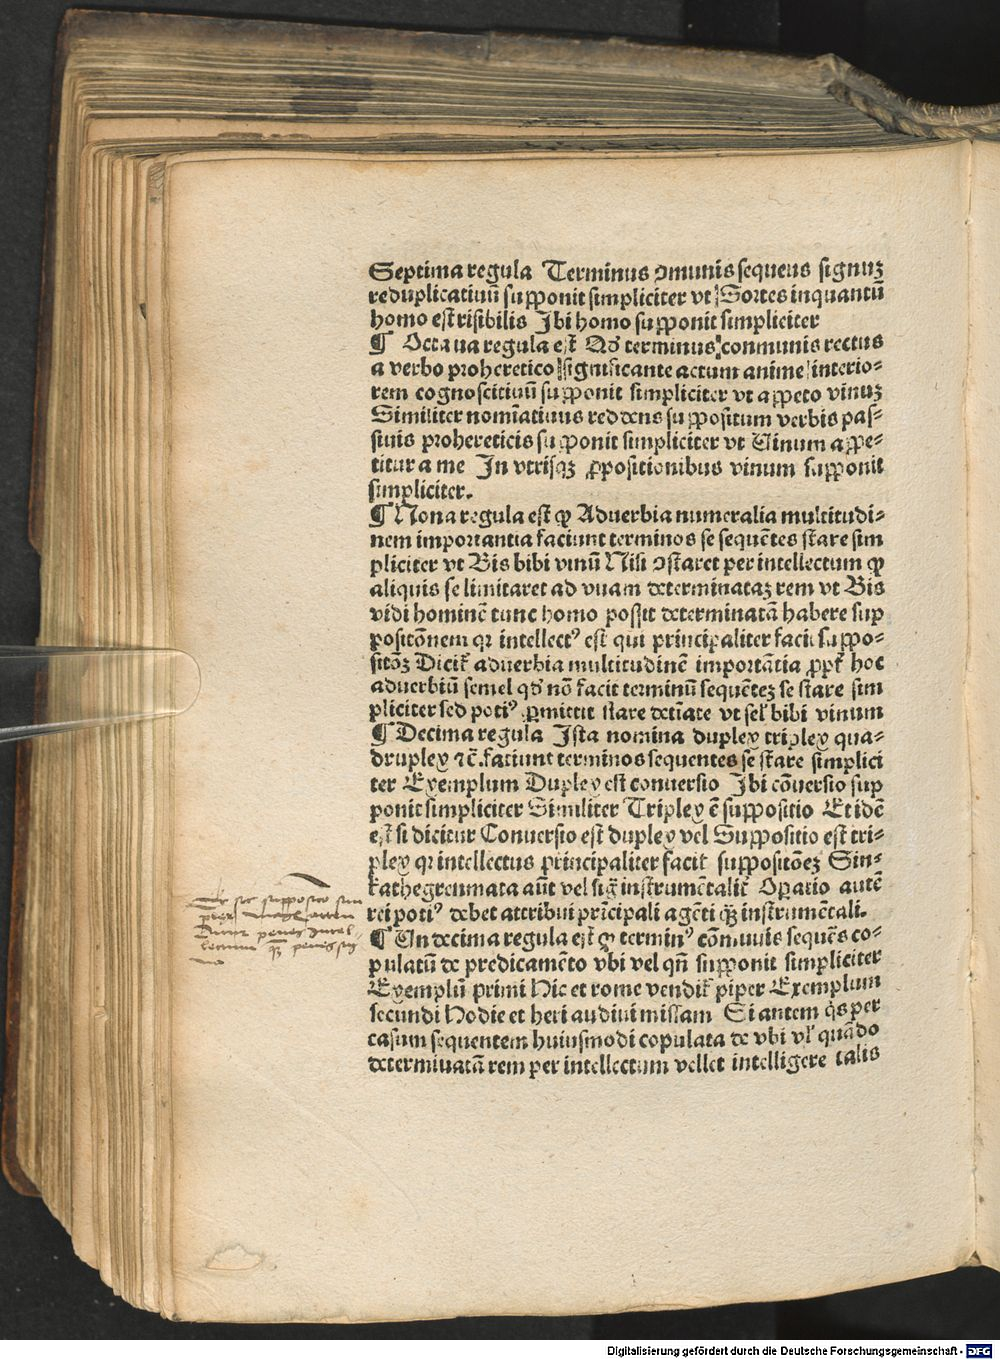 Septima regula Terminus ꝯmunis sequens signuꝫ
reduplicatiuū supponit simpliciter vt Sortes inquantū
homo est risibilis Ibi homo supponit simpliciter
¶ Octaua regula est Qd' terminus conmunis rectus
a verbo proheretico significante actum anime interio⸗
rem cognoscitiuū supponit simpliciter vt appeto vinuꝫ
Similiter nomīatiuus reddens suppositum verbis pas⸗
siuis prohereticis supponit simpliciter vt Uinum appe⸗
titur a me In vtrisqꝫ ꝓpositionibus vinum supponit
simpliciter.
¶ Nona regula est ꝙ Aduerbia numeralia multitudi⸗
nem importantia faciunt terminos se sequētes stare sim
pliciter vt Bis bibi vinū Nisi ꝯstaret per intellectum ꝙ
aliquis se limitaret ad vnam determinataꝫ rem vt Bis
vidi hominē tunc homo possit determinatā habere sup
positōnem qꝛ intellectꝰ est qui principaliter facit suppo⸗
sitōꝫ Dicit̄ aduerbia multitudinē importātia ꝓpt̄ hoc
aduerbiū semel qd' nō facit terminū sequēteꝫ se stare sim
pliciter sed potiꝰ ꝑmittit stare detīate vt sel' bibi vinum
¶ Decima regula Ista nomina duplex triplex qua⸗
druplex ⁊c̄. faciunt terminos sequentes se stare simplici
ter Exemplum Duplex est conuersio Ibi cōuersio sup
ponit simpliciter Similiter Triplex ē suppositio Et idē
est si dicitur Conuersio est duplex vel Suppositio est tri⸗
plex qꝛ intellectus principaliter facit suppositōeꝫ Sin⸗
kathegreumata aūt vel siḡ instrumētalit̄ Oꝑatio autē
rei potiꝰ debet attribui prīcipali agēti qꝫ̄ instrumētali.
¶ Undecima regula est ꝙ terminꝰ cōmunis sequēs co⸗
pulatū de predicamēto vbi vel qn̄ supponit simpliciter
Exemplū primi Hic et rome vendit̄ piper Exemplum
secundi Hodie et heri audiui missam Si autem q̇s per
casum sequentem huiusmodi copulata de vbi vl' quādo
determinatā rem per intellectum vellet intelligere talis
sic suppositio sim
penes intel⸗
lectum qꝫ̄ penes sig
no
Digitalisierung gefördert durch die Deutsche Forschungsgemeinschaft - DFG